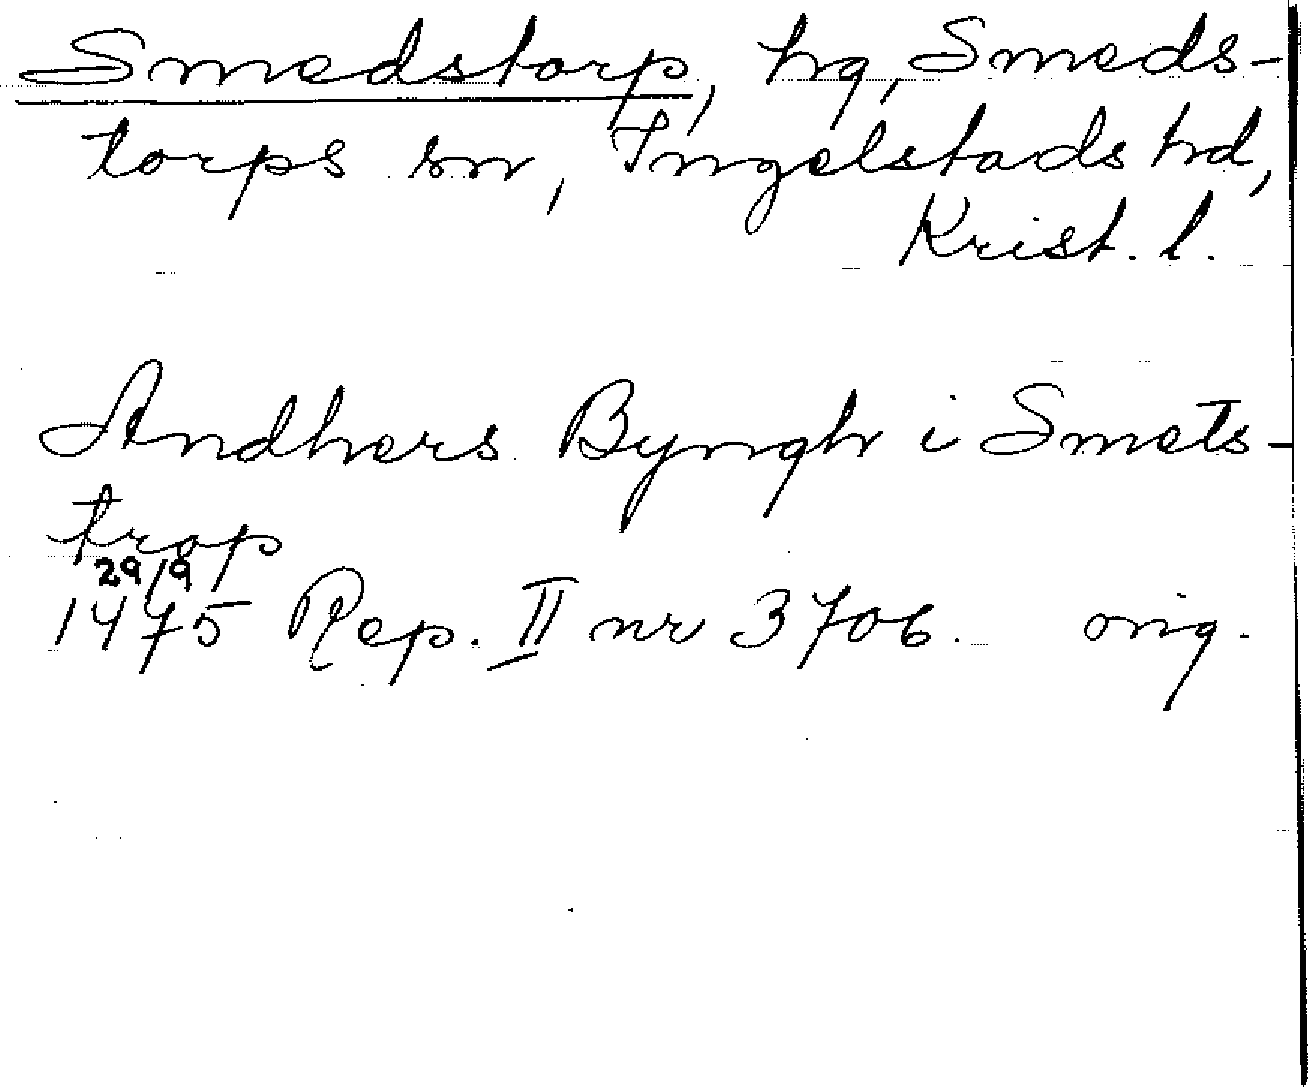 Smedstorp, hg, Smeds-
torps sn, Ingelstads hd,
Krist. l.
Andhers Byngh i Smets-
trop
29/9
1475 Rep. II nr 3706. orig.